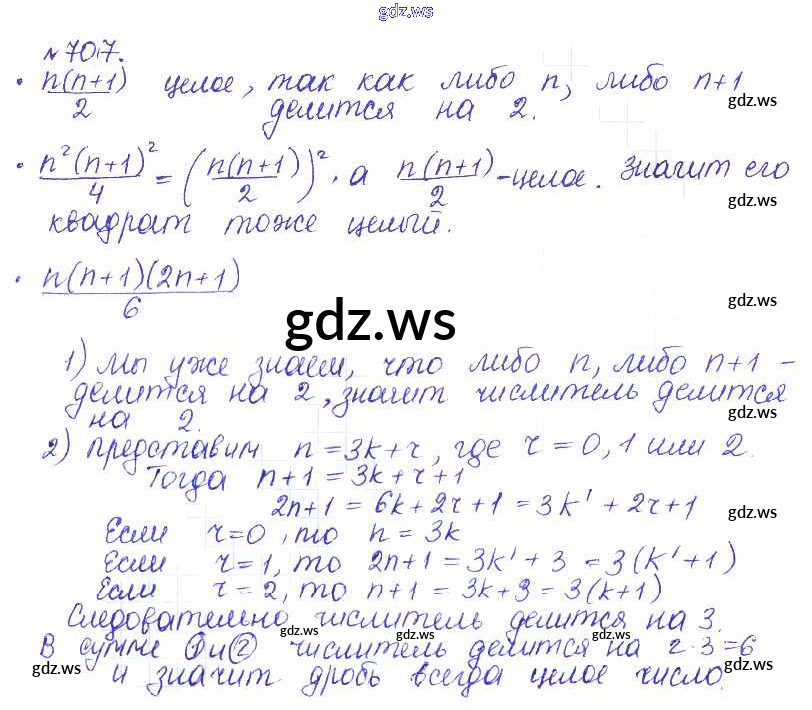 gdz.ws
№ 707.
• n(n+1)/2 целое, так как либо n, либо n+1
gdz.ws
делится на 2.
• n²(n+1)²/4 = (n(n+1)/2)², а n(n+1)/2 - целое. Значит его
gdz.ws
квадрат тоже целый.
• n(n+1)(2n+1)/6
gdz.ws
gdz.ws
1) Мы уже знаем, что либо n, либо n+1 -
делится на 2, значит числитель делится
gdz.ws
на 2.
2) представим n = 3k + r, где r = 0, 1 или 2.
Тогда n+1 = 3k + r + 1
2n+1 = 6k + 2r + 1 = 3k' + 2r + 1
gdz.ws
Если r = 0, то n = 3k
Если r = 1, то 2n+1 = 3k' + 3 = 3(k'+1)
Если r = 2, то n+1 = 3k+3 = 3(k+1)
Следовательно числитель делится на 3.
gdz.ws gdz.ws gdz.ws
В сумме ① и ② числитель делится на 2·3=6
gdz.ws gdz.ws gdz.ws
и значит дробь всегда целое число.